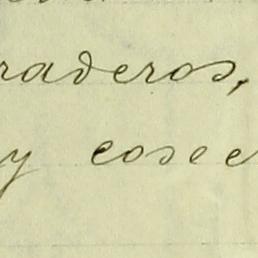 raderos,
y cosec